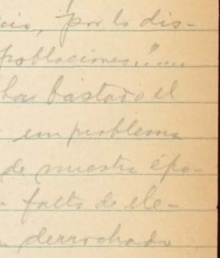 cio, "por lo dis-
poblaciones..."
bastado el
un problema
de nuestra épo-
falta de ele-
derrochado